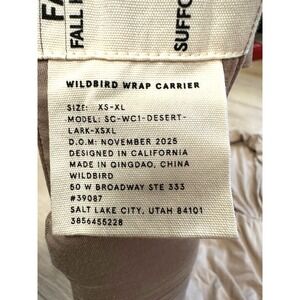 FA
FALL
SUFFO
WILDBIRD WRAP CARRIER
SIZE: XS-XL
MODEL: SC-WC1-DESERT-
LARK-XSXL
D.O.M: NOVEMBER 2025
DESIGNED IN CALIFORNIA
MADE IN QINGDAO, CHINA
WILDBIRD
50 W BROADWAY STE 333
#39087
SALT LAKE CITY, UTAH 84101
3856455228